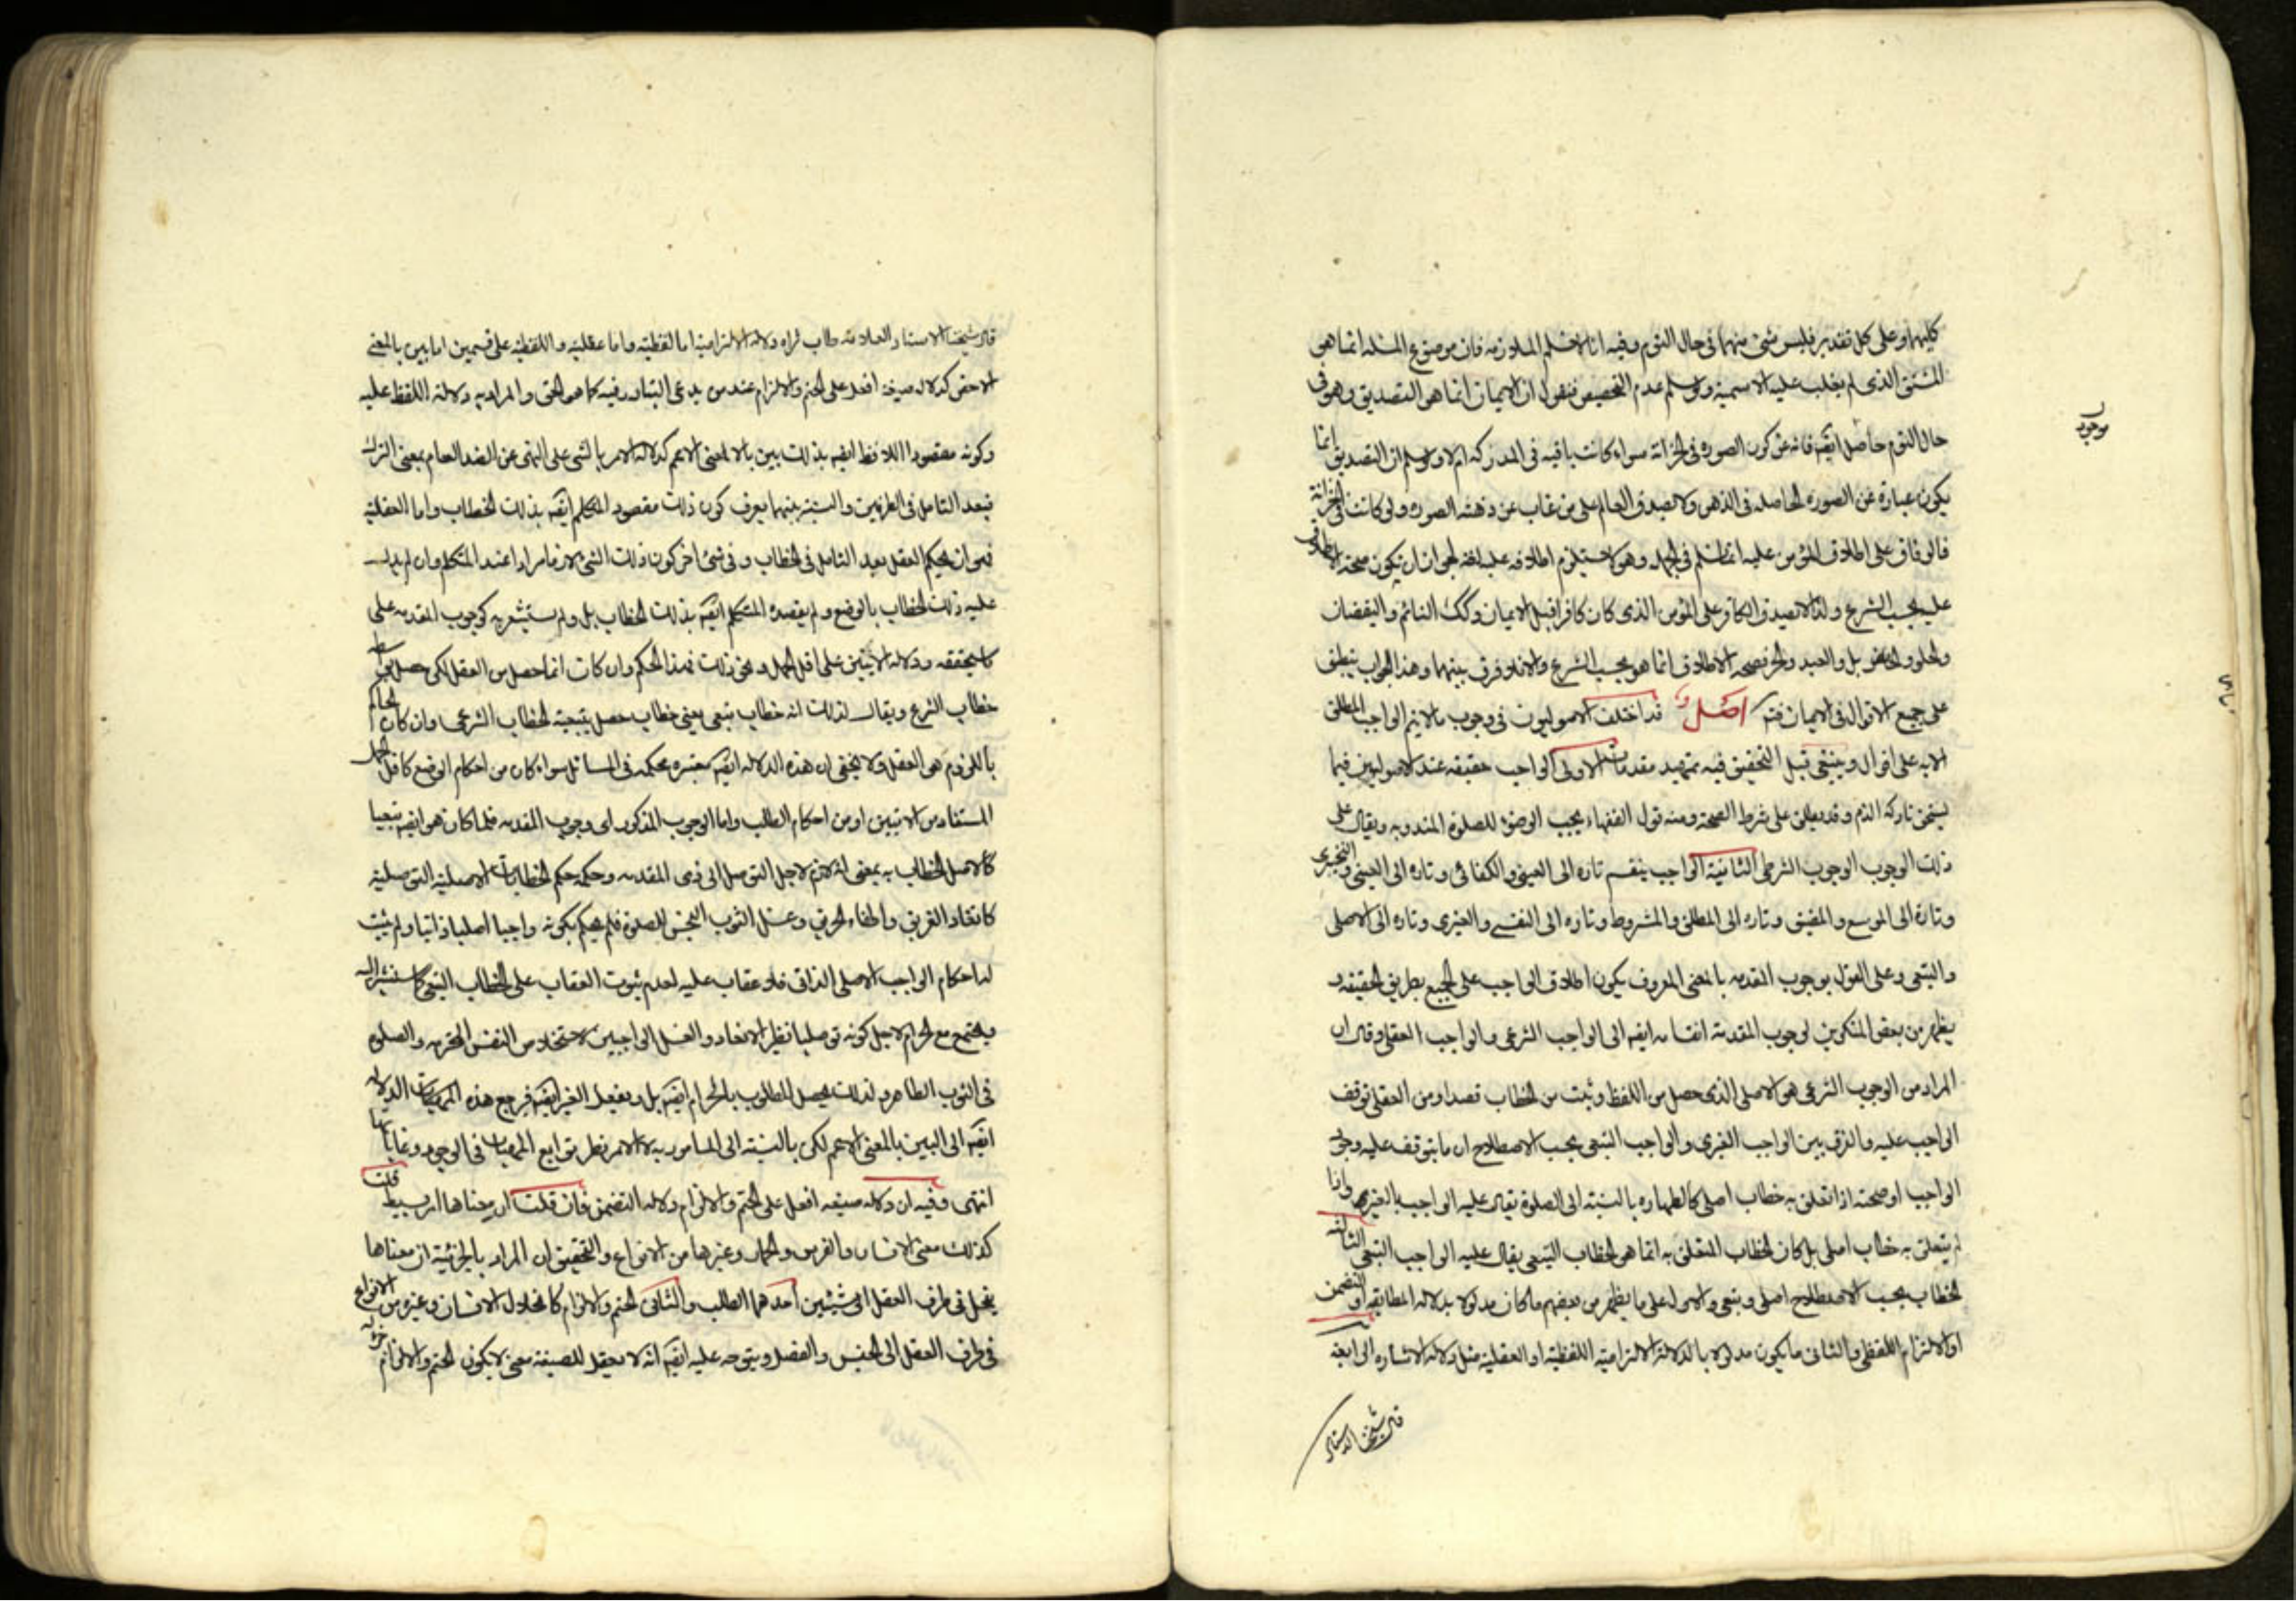 كليهما وعلى كل تقدير فليس شئ منهما في حال النوم وفيه انا لا نسلم الملازمه فان موضوع المسئله انما هي
المشتق الذى لم يغلب عليه الاسمية ولو سلم عدم التخصيص فنقول ان الايمان انما هو التصديق وهو في
حال النوم حاصل ايضه فانه عن كون الصوره في الخزانة سواء كانت باقيه في المدركه ام لا ولو سلم ان التصديق انما
يكون عبارة عن الصوره الحاصله في الذهن ولا يصدق العالم على من غاب عن ذهنه الصوره ولو كانت في الخزانة
فالوفاق على اطلاق المؤمن عليه انما نسلم في الجمله وهو لا يستلزم اطلاقه عليه لغة لجواز ان يكون صحة الاطلاق
عليه بحسب الشرع ولذا لا يصدق الكافر على المؤمن الذى كان كافرا قبل الايمان وكك النائم واليقضان
والحلو والحامض بل والعبد والحر فصحه الاطلاق انما هو بحسب الشرع والا فلا فرق بينهما وهذا الجواب ينطبق
على جميع الاقوال في الايمان فتم اصل قد اختلف الاصوليون في وجوب ما لا يتم الواجب المطلق
الا به على اقوال وينبغى قبل التحقيق فيه تمهيد مقدمات الاولى الواجب حقيقه عند الاصوليين فيما
يستحق تاركه الذم وقد يطلق على شرط الصحة ومنه قول الفقهاء يجب الوضوء للصلوة المندوبه ويقال على
ذلك الوجوب الوجوب الشرطى الثانية الواجب ينقسم تاره الى العينى والكفائى وتاره الى العينى والتخييرى
وتارة الى الموسع والمضيق وتاره الى المطلق والمشروط وتاره الى النفسى والغيرى وتاره الى الاصلى
والتبعى وعلى القول بوجوب المقدمه بالمعنى المعروف يكون اطلاق الواجب على الجميع بطريق الحقيقه و
يظهر من بعض المنكرين لوجوب المقدمة انقسامه ايضه الى الواجب الشرعى والواجب العقلى وقال ان
المراد من الوجوب الشرعى هو الاصلى الذى حصل من اللفظ وثبت من الخطاب قصدا ومن العقلى توقف
الواجب عليه والفرق بين الواجب الغيرى والواجب التبعى بحسب الاصطلاح ان ما يتوقف عليه وجود
الواجب او صحته اذا تعلق به خطاب اصلى كالطهاره بالنسبة الى الصلوة يقال عليه الواجب بالغير واذا
لم يتعلق به خطاب اصلى بل كان الخطاب المتعلق به انما هو الخطاب التبعى يقال عليه الواجب التبعى الثالثه
الخطاب بحسب الاصطلاح اصلى وتبعى والاول على ما يظهر من بعضهم ما كان مدلولا بدلاله المطابقه او التضمن
او الالتزام اللفظى والثانى ما يكون مدلولا بالدلالة الالتزامية اللفظية او العقلية مثل دلاله الاشاره الرابعة
قال شيخنا الاستاد
موجود
قال شيخنا الاستاد العلامة طاب ثراه دلاله الالتزامية اما لفظية واما عقلية واللفظية على قسمين اما بين بالمعنى
الاخص كدلاله صيغة افعل على الحتم والالزام عند من يدعى التبادر فيه كما هو الحق والمراد به دلالة اللفظ عليه
وكونه مقصودا اللافظ ايضه بذلك بين بالمعنى الاعم كدلاله الامر بالشى على النهى عن الضد العام بمعنى الترك
فبعد التامل في الطرفين والنسبة بينهما يعرف كون ذلك مقصود المتكلم ايضه بذلك الخطاب واما العقلية
فهو ان يحكم العقل بعد التامل في الخطاب وفي شئ اخر كون ذلك الشئ لازما مرادا عند المتكلم وان لم يدل
عليه ذلك الخطاب بالوضع ولم يقصده المتكلم ايضه بذلك الخطاب بل ولم يستشعر به كوجوب المقدمه على
ما سنحققه ودلاله الايتين على اقل الحمل ونحو ذلك فهذا الحكم وان كان انما حصل من العقل لكن حصل بواسطه
خطاب الشرع ويقال لذلك انه خطاب تبعى يعنى خطاب حصل بتبعية الخطاب الشرعى وان كان الحاكم
باللزوم هو العقل ولا يخفى ان هذه الدلاله ايضه معتبره محكمه في المسائل سواء كان من احكام الوضع كاقل الحمل
المستفاد من الايتين او من احكام الطلب واما الوجوب المذكور اى وجوب المقدمه فلما كان هو ايضه تبعيا
كاصل الخطاب به بمعنى انه لازم لاجل التوصل الى ذى المقدمه وحكمه حكم الخطابات الاصلية التوصلية
كانقاذ الغريق واطفاء الحريق وغسل الثوب النجس للصلوة فلم يحكم بكونه واجبا اصليا ذاتيا ولم يثبت
له احكام الواجب الاصلى الذاتى فلا عقاب عليه لعدم ثبوت العقاب على الخطاب التبعى كما سنشير اليه
ويجتمع مع الحرام لاجل كونه توصليا نظير الانقاذ والغسل الواجبين لاستخلاص النفس المحترمه والصلوه
في الثوب الطاهر ولذلك يحصل المطلوب بالحرام ايضه بل وبفعل الغير ايضه فرجع هذه الدلاله
ايضه الى البين بالمعنى الاعم لكن بالنسبه الى المامور به لا الامر نظير توابع المهيات في الوجود وغاياتها
انتهى وفيه ان دلاله صيغه افعل على الحتم والالزام دلاله التضمن فان قلت ان معناها امر بسيط قلت
كذلك معنى الانسان والفرس والحمار وغيرها من الانواع والتحقيق ان المراد بالجزئية ان معناها
ينحل في طرف العقل الى شيئين احدهما الطلب والثانى الحتم والالزام كانحلال الانسان وغيره من الانواع
في طرف العقل الى الجنس والفصل ويتوجه عليه ايضه انه لا يعقل للصيغة معنى لا يكون الحتم والالزام جزئه